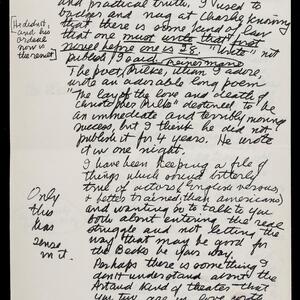 and practical truth. I used to
badger and nag at Charlie knowing
that there is some kind of law
that one must write that first
novel before one is 28. "Write" not
publish I said
The poet, Rilke, whom I adore,
wrote an adorable long poem
"The Lay of the love and death of
Christopher Rilke" destined to be
an immediate and terribly moving
success, but I think he did not
publish it for 4 years. He wrote
it in one night.
I have been keeping a file of
things which sound utterly
true of actors (English versions,
& better trained than americans)
and wanting to talk to you
both about entering the real
struggle and not letting the
way that may be good for
the Becks be your way.
Perhaps there is something I
don't understand about the
Artaud kind of theater that
you two are in love with
[He didn't,
and his
ordeal
now is
the result
Only
this
has
sense
in it.